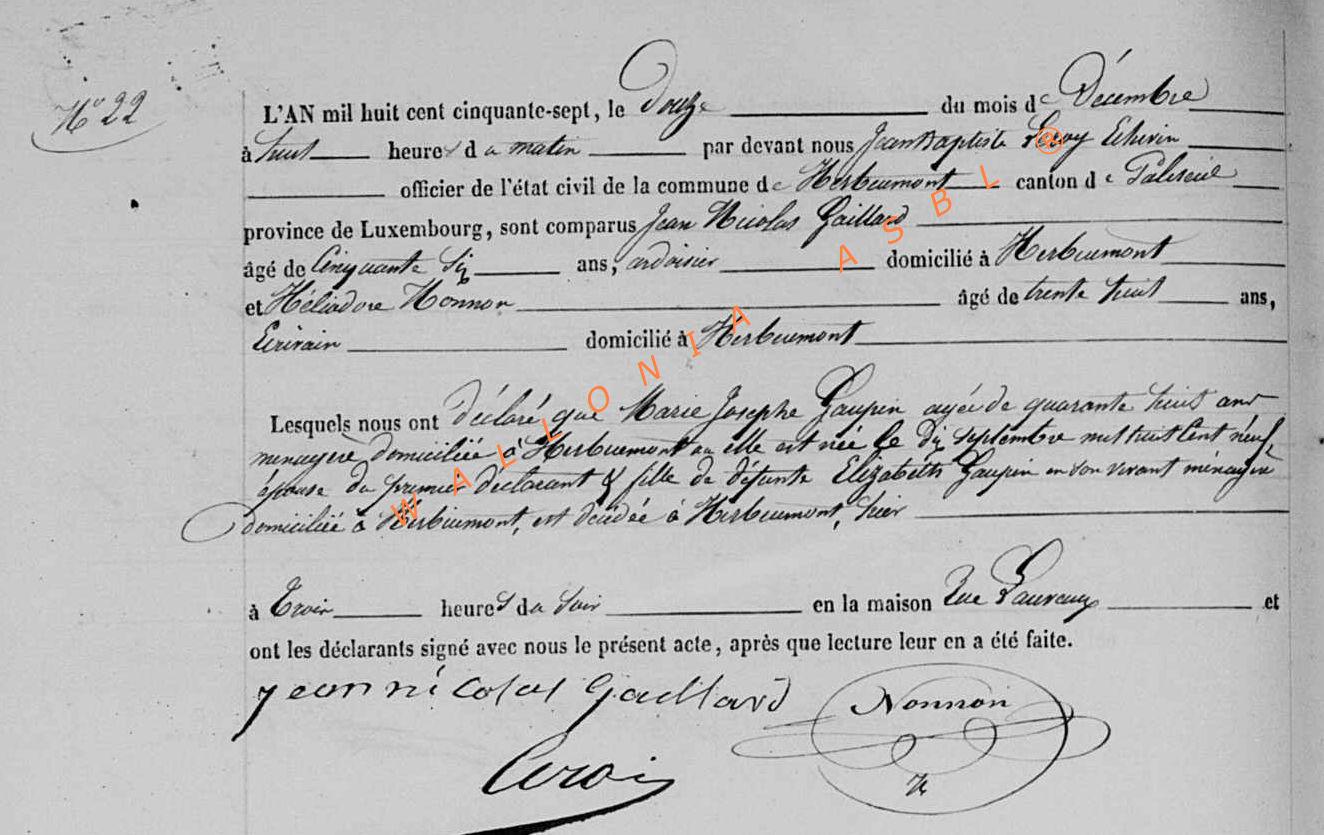 N° 22
L'AN mil huit cent cinquante-sept, le Douze du mois de Décembre
à huit heures du matin par devant nous Jean Baptiste Leroy Echevin
officier de l'état civil de la commune de Herbeumont canton de Paliseul
province de Luxembourg, sont comparus Jean Nicolas Gaillard
âgé de Cinquante Six ans, ardoisier domicilié à Herbeumont
et Héliodore Nonnon âgé de trente huit ans,
Ecrivain domicilié à Herbeumont
Lesquels nous ont déclaré que Marie Josephe Gaupin agée de quarante huit ans
menagère domiciliée à Herbeumont où elle est née le dix septembre mil huit cent neuf,
épouse du premier déclarant & fille de défunte Elizabeth Gaupin en son vivant ménagère
domiciliée à Herbeumont, est décédée à Herbeumont, hier
à Trois heures du Soir en la maison Rue et
ont les déclarants signé avec nous le présent acte, après que lecture leur en a été faite.
jean nicolas Gaillard
Nonnon
H
Leroy
WALLONIA ASBL ®